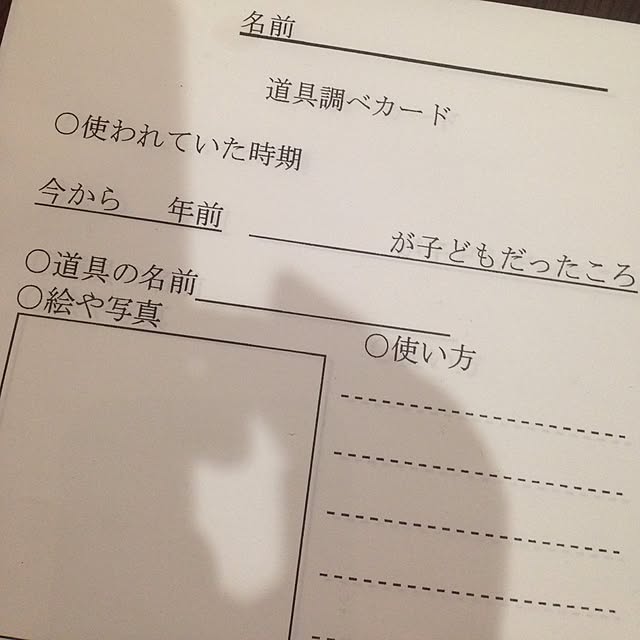 名前
道具調べカード
〇使われていた時期
今から　　年前　　　　　　が子どもだったころ
〇道具の名前
〇絵や写真
〇使い方